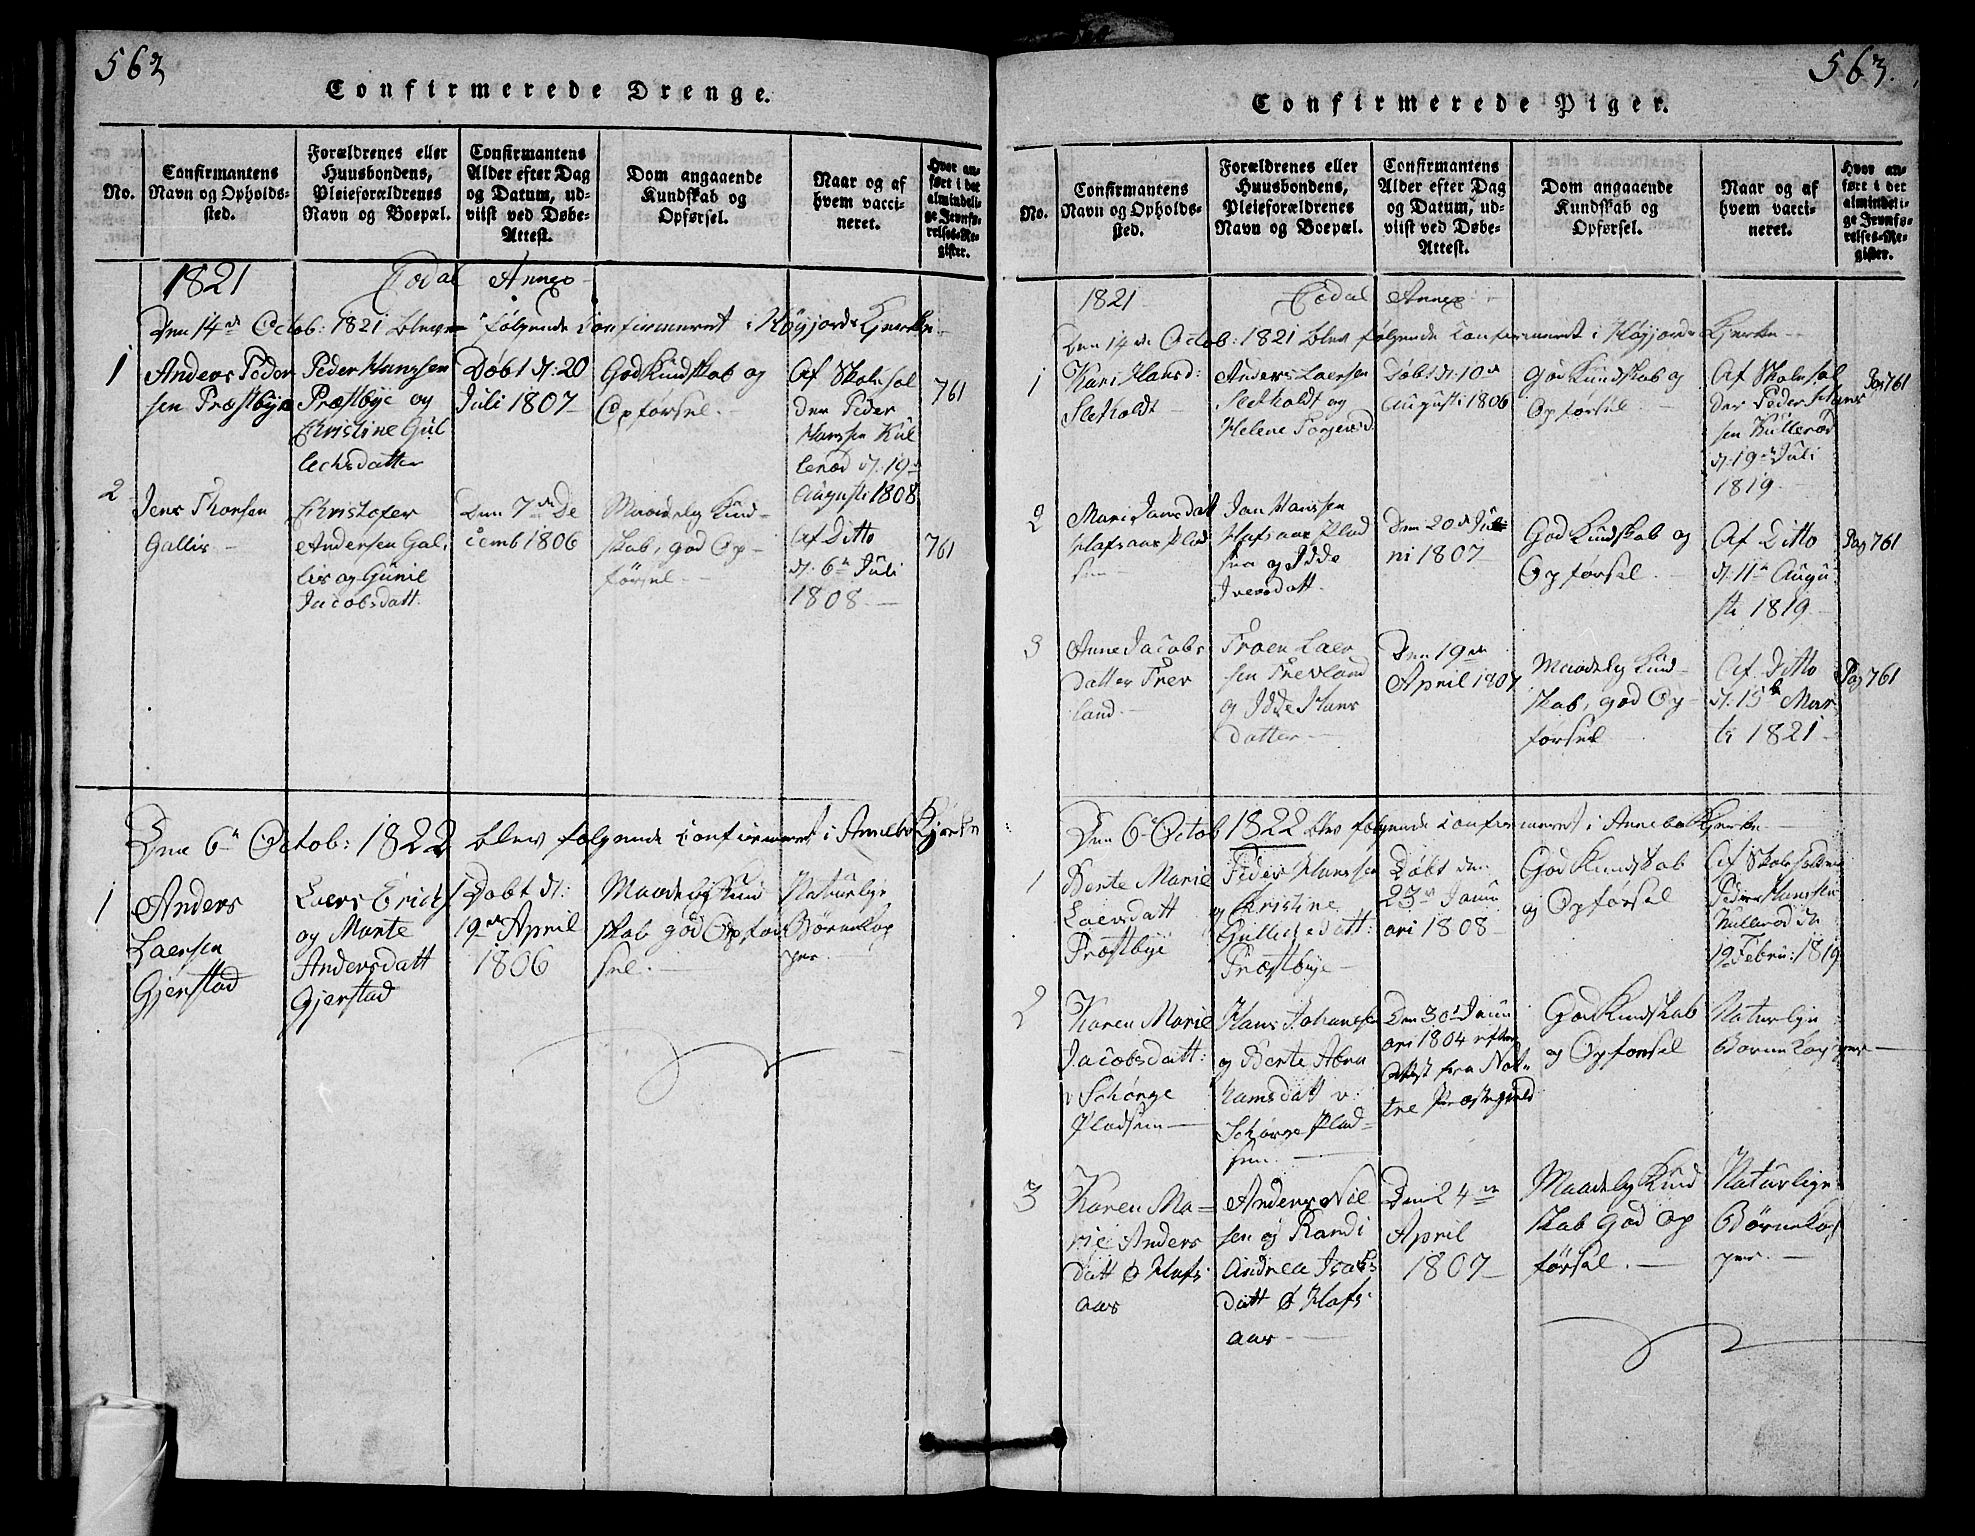 562
Confirmerede Drenge.
No.
Confirmantens
Navn og Opholds-
sted.
Forældrenes eller
Huusbondens,
Pleieforældrenes
Navn og Boepæl.
Confirmantens
Alder efter Dag
og Datum, ud-
viist ved Døbe-
Attest.
Dom angaaende
Kundskab og
Opførsel.
Naar og af
hvem vacci-
neret.
Hvor an-
ført i det
almindeli-
ge Jevnfø-
relses-Re-
gister.
1821 Annex
Den 14de Octob: 1821 blev følgende Confirmeret i Høyjords Kjerke
1
Anders Peder
sen Præstbye
Peder Hanssen
Præstbye og
Christine Gul
lechsdatter
Døbt d: 20
Juli 1807
God Kundskab og
Opførsel.
Af Skolehol
der Peder
Hanssen Kul
lerød d. 19
Augusti 1808
761
2
Jens
Gallis
Christofer
Andersen Gal
lis og Gunil
Jacobsdatt.
Den 7de De
cemb 1806
Maadelig Kund-
skab, god Op-
førsel
Af Ditto
d. 6 Juli
1808
761
Den 6 Octob: 1822 blev følgende Confirmeret i Annebo Kjerke
1
Anders
Laersen
Gjerstad
Laers Erichs
og Marte
Andersdatt
Gjerstad
Døbt d:
19de April
1806
Maadelig Kund
skab god Opfør
sel.
Naturlige
Børnekop
per.
563.
Confirmerede Piger.
No.
Confirmantens
Navn og Opholds-
sted.
Forældrenes eller
Huusbondens,
Pleieforældrenes
Navn og Boepæl.
Confirmantens
Alder efter Dag
og Datum, ud-
viist ved Døbe-
Attest.
Dom angaaende
Kundskab og
Opførsel.
Naar og af
hvem vacci-
neret.
Hvor an-
ført i det
almindeli-
ge Jevnfø-
relses-Re-
gister.
1821 Annex
Den 14de Octob: 1821 blev følgende Confirmeret i Høyjords Kjerke
1
Kari
Anders Laersen
og
Helene
Døbt d. 10de
Augusti 1806
God Kundskab og
Opførsel.
Af Skolehol
der Peder Hans
sen Kullerød
d. 19de Juli
1819
Pag 761
2
Mari Jansdatt
Hafsaas Plad
sen
Jan Hanssen
Hafsaas Plad
sen og Idde
Iversdatt.
Den 20de Ju
ni 1807
God Kundskab og
Opførsel.
Af Ditto
d. 11te Augu
sti 1819
Pag 761
3
Anne Jacobs
datter Frev
land.
Laer
sen Frevland
og Idde Hans
datter
Den 19de
April 1807
Maadelig Kund-
skab, god Op-
førsel
Af Ditto
d. 15de Mar
ti 1821
Pag 761
Den 6 Octob 1822 blev følgende Confirmeret i Annebo Kjerke
1
Berte Marie
Laersdatt
Præstbye
Peder Hanssen
og Christine
Gullichsdatt:
Præstbye
Døbt den
23de Janu
ari 1808
God Kundskab
og Opførsel
Af Skoleholder
Peder Hanssen
Kullerød d.
19 Febru: 1819
2
Karen Marie
Jacobsdatt:
v Schørge
Pladsen
Hans Johansen
og Berte Abra
hamsdatt v:
Schørge Plad-
sen.
Den 30te Janu
ari 1804 efter
Attest fra Not-
terø Præstegield
God Kundskab
og Opførsel
Naturlige
Børnekopper
3
Karen Ma=
rie Anders
datt Ø Hafs
aas
Anders Niel
sen og Randi
Andrea Isaks
datt Ø Hafs
aas
Den 24de
April
1807
Maadelig Kund
skab God Op
førsel.
Naturlige
Børnekop
per.